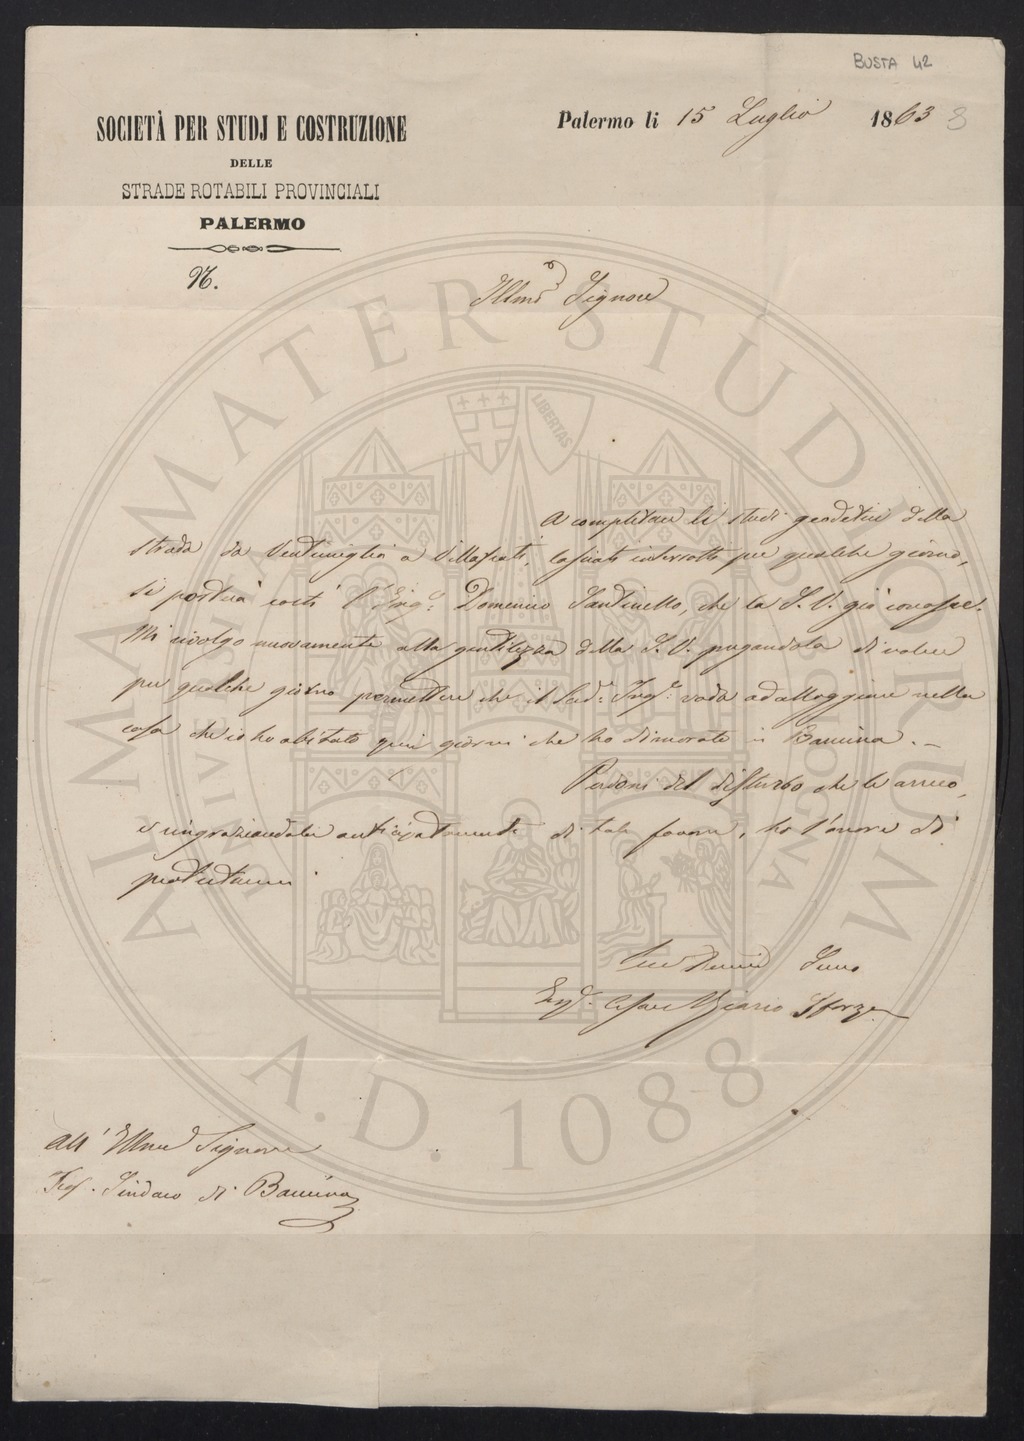 BUSTA 42
SOCIETÀ PER STUDJ E COSTRUZIONE
DELLE
STRADE ROTABILI PROVINCIALI
PALERMO
N.
Palermo li 15 Luglio 1863 8
Illmo Signore
A completare li studi geodetici della
strada da Ventimiglia a Villafrati, lasciati interrotti per qualche giorno,
si porterà costì l'Ingre. Domenico Santinello, che la S. V. già conosce.
Mi rivolgo nuovamente alla gentilezza della S. V. pregandola di volere
per qualche giorno permettere che il Sud. Ingre. vada ad alloggiare nella
casa che io ho abitato quei giorni che ho dimorato in Baucina. –
Perdoni del disturbo che le arreco,
e ringraziandola anticipatamente di tale favore, ho l'onore di
protestarmi
Suo Servo
Ingre. Cesare Riario Sforza
All' Illmo Signore
Sig. Sindaco di Baucina
ALMA MATER STUDIORUM
UNIVERSITÀ DI BOLOGNA
LIBERTAS
A.D. 1088